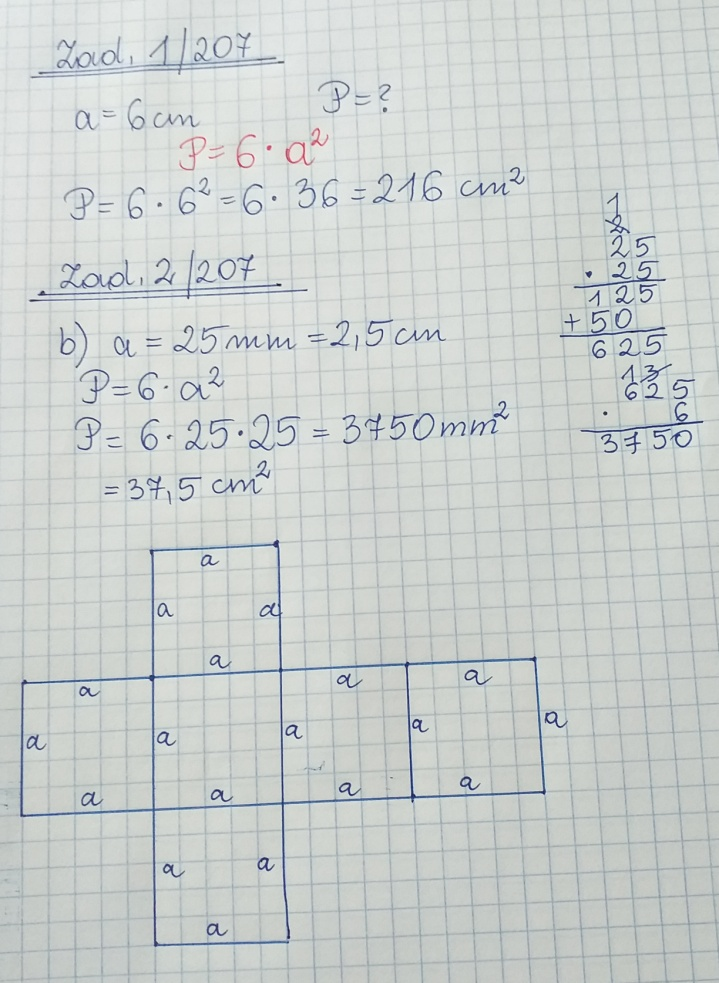 Zad. 1/207
a = 6 cm P = ?
P = 6 · a²
P = 6 · 6² = 6 · 36 = 216 cm²
Zad. 2/207
b) a = 25 mm = 2,5 cm
P = 6 · a²
P = 6 · 25 · 25 = 3750 mm²
= 37,5 cm²
1
2
25
· 25
125
+ 50
625
13
625
· 6
3750
a
a a
a
a a a
a a a a a
a a a a
a a
a